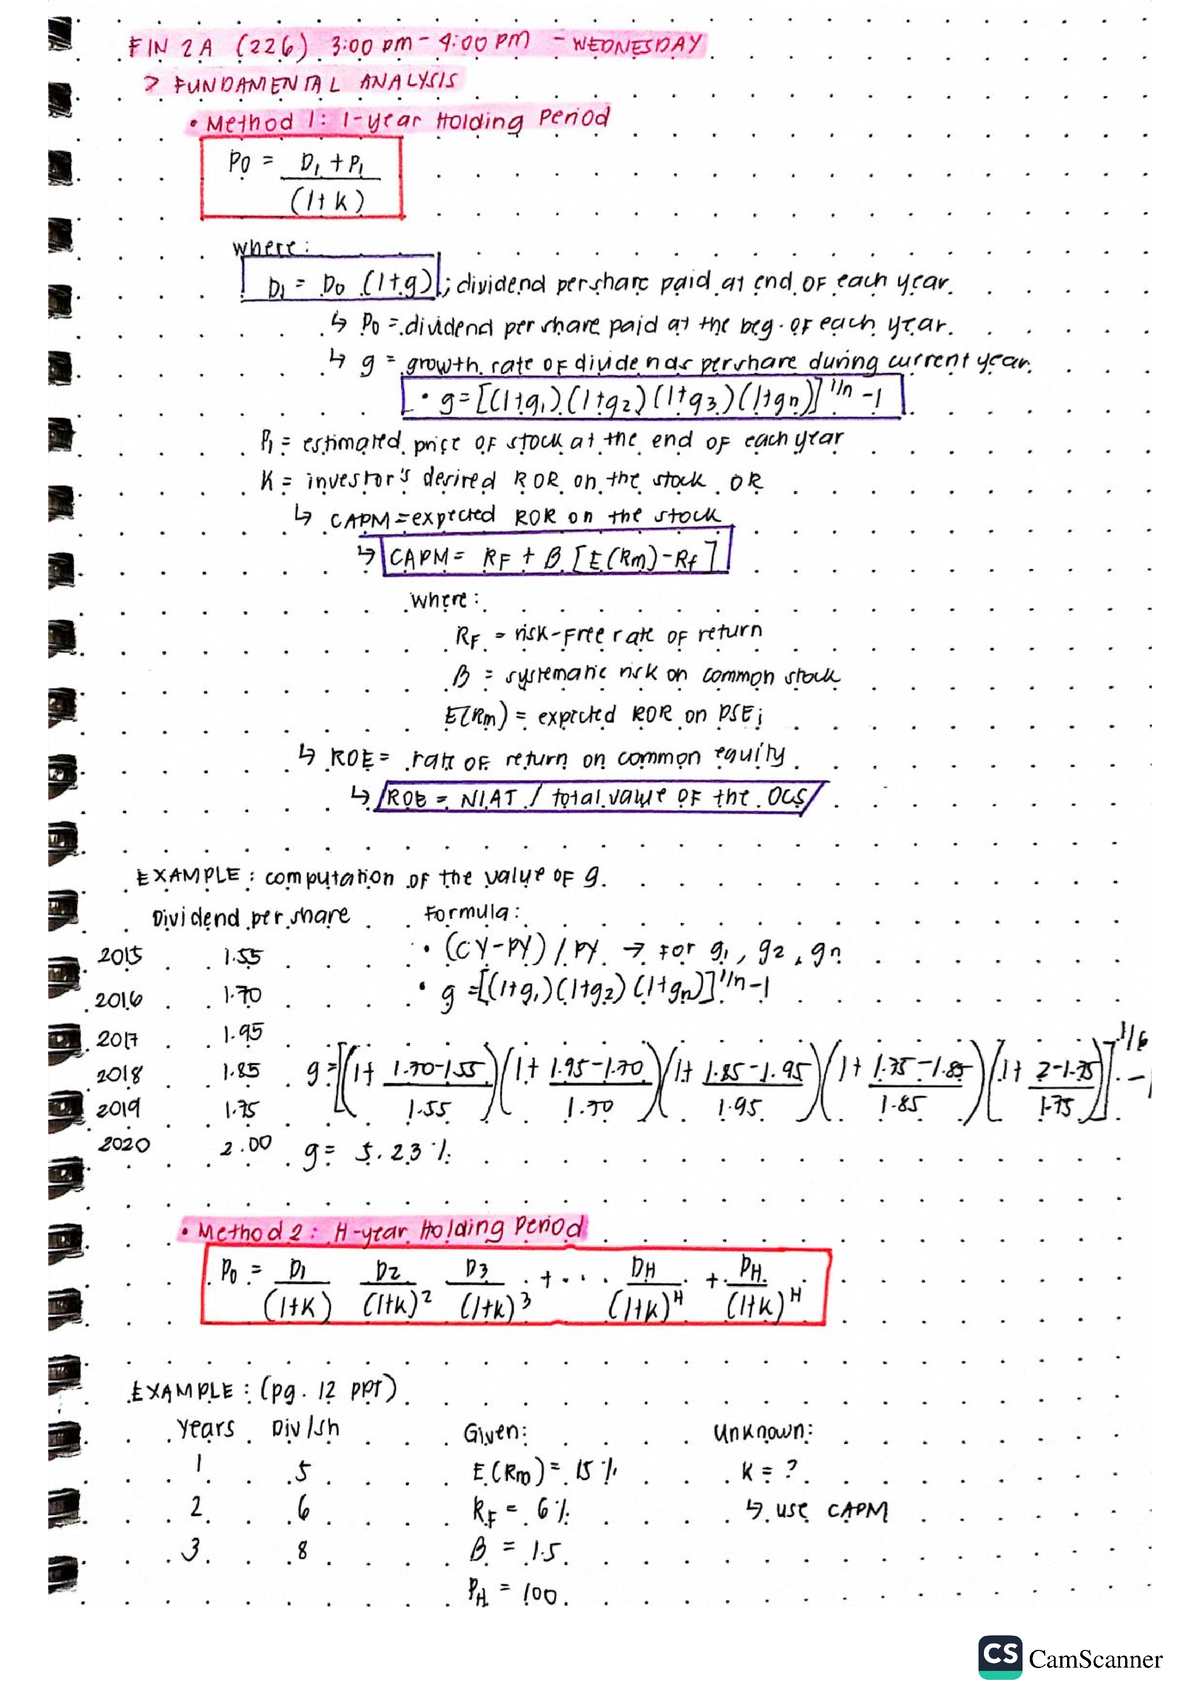 FIN 2A (226) 3:00 pm - 4:00 PM - WEDNESDAY
> FUNDAMENTAL ANALYSIS
• Method 1: 1-year Holding Period
P0 = D1 + P1 / (1+K)
where:
D1 = D0 (1+g); dividend per share paid at end OF each year.
↳ P0 = dividend per share paid at the beg. OF each year.
↳ g = growth rate OF dividends per share during current year.
• g = [(1+g1)(1+g2)(1+g3)(1+gn)]^1/n - 1
P1 = estimated price OF stock at the end OF each year
K = investor's desired ROR on the stock OR
↳ CAPM = expected ROR on the stock
↳ CAPM = RF + B [E(Rm) - Rf]
where:
RF = risk-free rate OF return
B = systematic risk on common stock
E(Rm) = expected ROR on PSEi
↳ ROE = rate OF return on common equity
↳ ROE = NIAT / total value OF the OCS
EXAMPLE: computation OF the value OF g.
Dividend per share Formula:
2015 1.55 • (CY-PY) / PY → For g1, g2, gn
2016 1.70 • g = [(1+g1)(1+g2)(1+gn)]^1/n - 1
2017 1.95
2018 1.85 g = [(1 + 1.70-1.55 / 1.55)(1 + 1.95-1.70 / 1.70)(1 + 1.85-1.95 / 1.95)(1 + 1.75-1.85 / 1.85)(1 + 2-1.75 / 1.75)]^1/6 - 1
2019 1.75
2020 2.00 g = 5.23%
• Method 2: H-year Holding Period
P0 = D1 / (1+K) D2 / (1+K)^2 D3 / (1+K)^3 + ... DH / (1+K)^H + PH / (1+K)^H
EXAMPLE: (pg. 12 PPT)
Years Div/sh Given: Unknown:
1 5 E(Rm) = 15% K = ?
2 6 RF = 6% ↳ use CAPM
3 8 B = 1.5
PH = 100
CS CamScanner